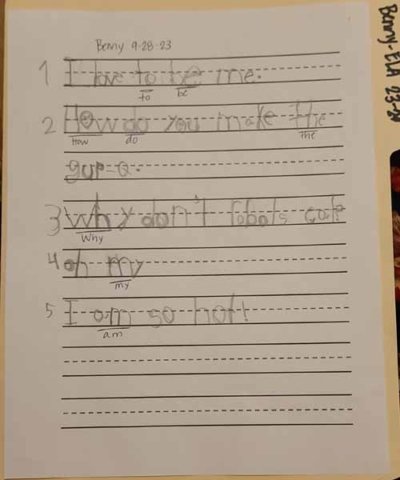 Benny 9-28-23
Benny-ELA 23-24
1 I love to be me.
to be
2 How do you make the
How do the
gup=Q.
3 Why don't robots
Why
4 oh my
my
5 I am so hot!
am